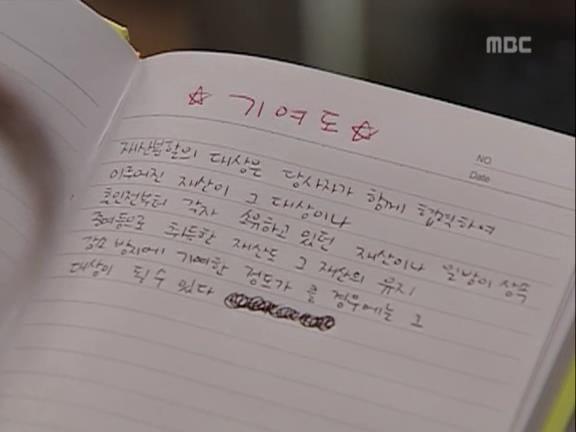 MBC
☆기여도☆
NO
Date
재산분할의 대상은 당사자가 함께 협력하여
이루어진 재산이 그 대상이나
혼인전부터 각자 소유하고 있던 재산이나 일방이 상속
증여등으로 취득한 재산도 그 재산의 유지
감소 방지에 기여한 정도가 클 경우에는 그
대상이 될 수 있다